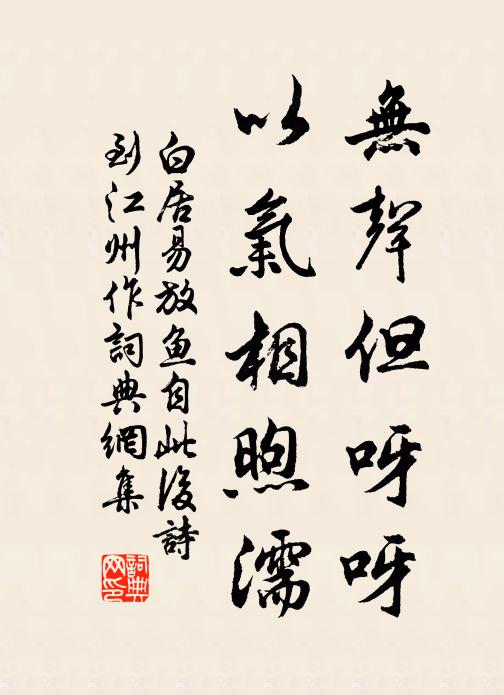 無聲但呀呀
以氣相煦濡
白居易放魚自此後詩
到江州作詞典網集
詞典
网印